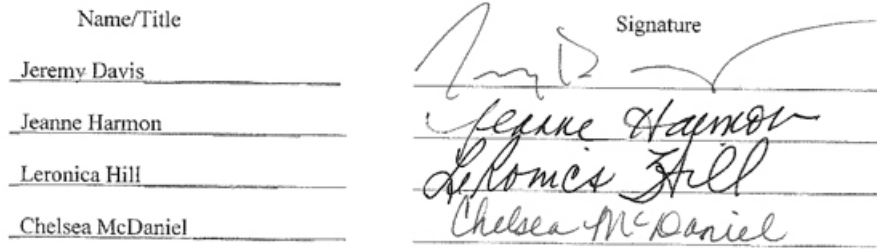 Name/Title Signature
Jeremy Davis
Jeanne Harmon Jeanne Harmon
Leronica Hill LeRonica Hill
Chelsea McDaniel Chelsea McDaniel